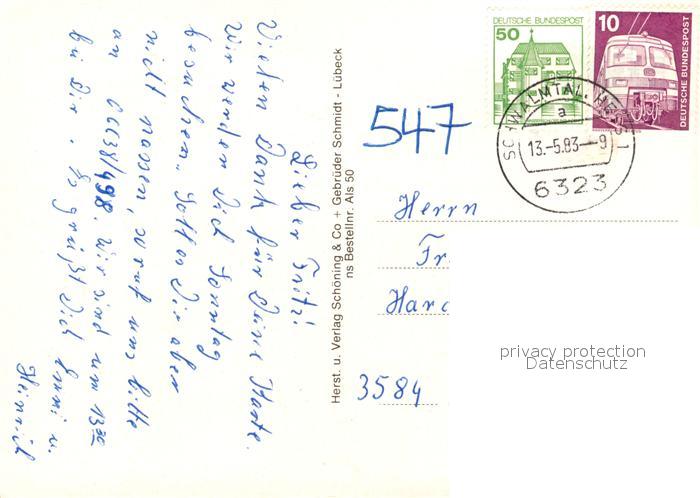 Lieber Fritz!
Vielen Dank für Deine Karte.
Wir werden Dich Sonntag
besuchen. Sollte Dir aber
nicht passen, so ruf uns bitte
an 06638/498. Wir sind um 13 30
bei Dir. Es grüßt Dich u.
Heinrich
Herst. u. Verlag Schöning & Co + Gebrüder Schmidt · Lübeck
ns Bestellnr. Als 50
DEUTSCHE BUNDESPOST
50
10
DEUTSCHE BUNDESPOST
SCHWALMTAL, HESS 1
a
13.-5.83-9
6323
547
Herrn
Fr
Har
3584
privacy protection
Datenschutz